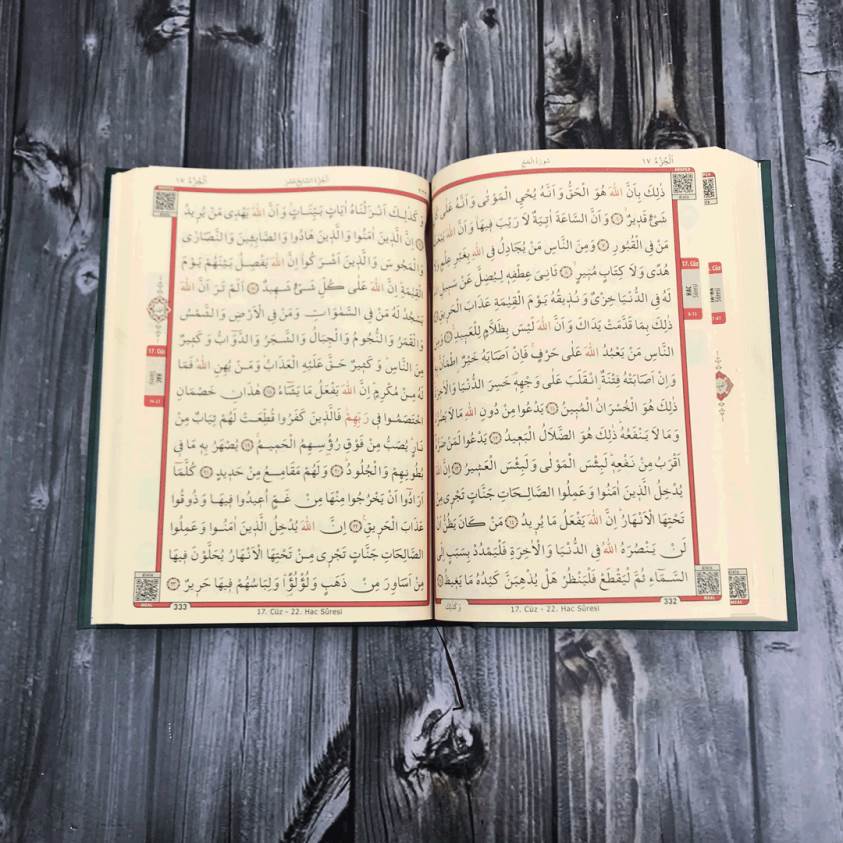 سُورَةُ الْحَجِّ
اَلْجُزْءُ ١٧
ذٰلِكَ بِاَنَّ اللّٰهَ هُوَ الْحَقُّ وَاَنَّهُ يُحْيِ الْمَوْتٰى وَاَنَّهُ عَلٰى
شَيْءٍ قَد۪يرٌ ﴿٦﴾ وَاَنَّ السَّاعَةَ اٰتِيَةٌ لَا رَيْبَ ف۪يهَا وَاَنَّ اللّٰهَ
مَنْ فِي الْقُبُورِ ﴿٧﴾ وَمِنَ النَّاسِ مَنْ يُجَادِلُ فِي اللّٰهِ بِغَيْرِ عِلْمٍ
هُدًى وَلَا كِتَابٍ مُن۪يرٍ ﴿٨﴾ ثَانِيَ عِطْفِه۪ لِيُضِلَّ عَنْ سَب۪يلِ
لَهُ فِي الدُّنْيَا خِزْيٌ وَنُذ۪يقُهُ يَوْمَ الْقِيٰمَةِ عَذَابَ الْحَر۪يقِ
ذٰلِكَ بِمَا قَدَّمَتْ يَدَاكَ وَاَنَّ اللّٰهَ لَيْسَ بِظَلَّامٍ لِلْعَب۪يدِ
النَّاسِ مَنْ يَعْبُدُ اللّٰهَ عَلٰى حَرْفٍ فَاِنْ اَصَابَهُ خَيْرٌ
وَاِنْ اَصَابَتْهُ فِتْنَةٌ انْقَلَبَ عَلٰى وَجْهِه۪ خَسِرَ الدُّنْيَا وَالْاٰخِرَةَ
ذٰلِكَ هُوَ الْخُسْرَانُ الْمُب۪ينُ ﴿١١﴾ يَدْعُوا مِنْ دُونِ اللّٰهِ مَا لَا
وَمَا لَا يَنْفَعُهُ ذٰلِكَ هُوَ الضَّلَالُ الْبَع۪يدُ ﴿١٢﴾ يَدْعُوا لَمَنْ
اَقْرَبُ مِنْ نَفْعِه۪ لَبِئْسَ الْمَوْلٰى وَلَبِئْسَ الْعَش۪يرُ ﴿١٣﴾
يُدْخِلُ الَّذ۪ينَ اٰمَنُوا وَعَمِلُوا الصَّالِحَاتِ جَنَّاتٍ تَجْر۪ي مِنْ
تَحْتِهَا الْاَنْهَارُ اِنَّ اللّٰهَ يَفْعَلُ مَا يُر۪يدُ ﴿١٤﴾ مَنْ كَانَ يَظُنُّ اَنْ
لَنْ يَنْصُرَهُ اللّٰهُ فِي الدُّنْيَا وَالْاٰخِرَةِ فَلْيَمْدُدْ بِسَبَبٍ اِلَى
السَّمَٓاءِ ثُمَّ لْيَقْطَعْ فَلْيَنْظُرْ هَلْ يُذْهِبَنَّ كَيْدُهُ مَا يَغ۪يظُ ﴿١٥﴾
17. Cüz
HAC
Sûresi
6-15
وَكَذٰلِكَ
17. Cüz - 22. Hac Sûresi
332
MEAL
اَلْجُزْءُ السَّابِعَ عَشَرَ
اَلْجُزْءُ ١٧
وَكَذٰلِكَ اَنْزَلْنَاهُ اٰيَاتٍ بَيِّنَاتٍ وَاَنَّ اللّٰهَ يَهْد۪ي مَنْ يُر۪يدُ
﴿١٦﴾ اِنَّ الَّذ۪ينَ اٰمَنُوا وَالَّذ۪ينَ هَادُوا وَالصَّابِـ۪ٔينَ وَالنَّصَارٰى
وَالْمَجُوسَ وَالَّذ۪ينَ اَشْرَكُوا اِنَّ اللّٰهَ يَفْصِلُ بَيْنَهُمْ يَوْمَ
الْقِيٰمَةِ اِنَّ اللّٰهَ عَلٰى كُلِّ شَيْءٍ شَه۪يدٌ ﴿١٧﴾ اَلَمْ تَرَ اَنَّ اللّٰهَ
يَسْجُدُ لَهُ مَنْ فِي السَّمٰوَاتِ وَمَنْ فِي الْاَرْضِ وَالشَّمْسُ
وَالْقَمَرُ وَالنُّجُومُ وَالْجِبَالُ وَالشَّجَرُ وَالدَّوَٓابُّ وَكَث۪يرٌ
مِنَ النَّاسِ وَكَث۪يرٌ حَقَّ عَلَيْهِ الْعَذَابُ وَمَنْ يُهِنِ اللّٰهُ فَمَا
لَهُ مِنْ مُكْرِمٍ اِنَّ اللّٰهَ يَفْعَلُ مَا يَشَٓاءُ ﴿١٨﴾ هٰذَانِ خَصْمَانِ
اخْتَصَمُوا ف۪ي رَبِّهِمْ فَالَّذ۪ينَ كَفَرُوا قُطِّعَتْ لَهُمْ ثِيَابٌ مِنْ
نَارٍ يُصَبُّ مِنْ فَوْقِ رُؤُ۫سِهِمُ الْحَم۪يمُ ﴿١٩﴾ يُصْهَرُ بِه۪ مَا ف۪ي
بُطُونِهِمْ وَالْجُلُودُ ﴿٢٠﴾ وَلَهُمْ مَقَامِعُ مِنْ حَد۪يدٍ ﴿٢١﴾ كُلَّمَٓا
اَرَادُٓوا اَنْ يَخْرُجُوا مِنْهَا مِنْ غَمٍّ اُع۪يدُوا ف۪يهَا وَذُوقُوا
عَذَابَ الْحَر۪يقِ ﴿٢٢﴾ اِنَّ اللّٰهَ يُدْخِلُ الَّذ۪ينَ اٰمَنُوا وَعَمِلُوا
الصَّالِحَاتِ جَنَّاتٍ تَجْر۪ي مِنْ تَحْتِهَا الْاَنْهَارُ يُحَلَّوْنَ ف۪يهَا
مِنْ اَسَاوِرَ مِنْ ذَهَبٍ وَلُؤْلُؤً۬ا وَلِبَاسُهُمْ ف۪يهَا حَر۪يرٌ ﴿٢٣﴾
17. Cüz
HAC
Sûresi
MEAL
333
17. Cüz - 22. Hac Sûresi